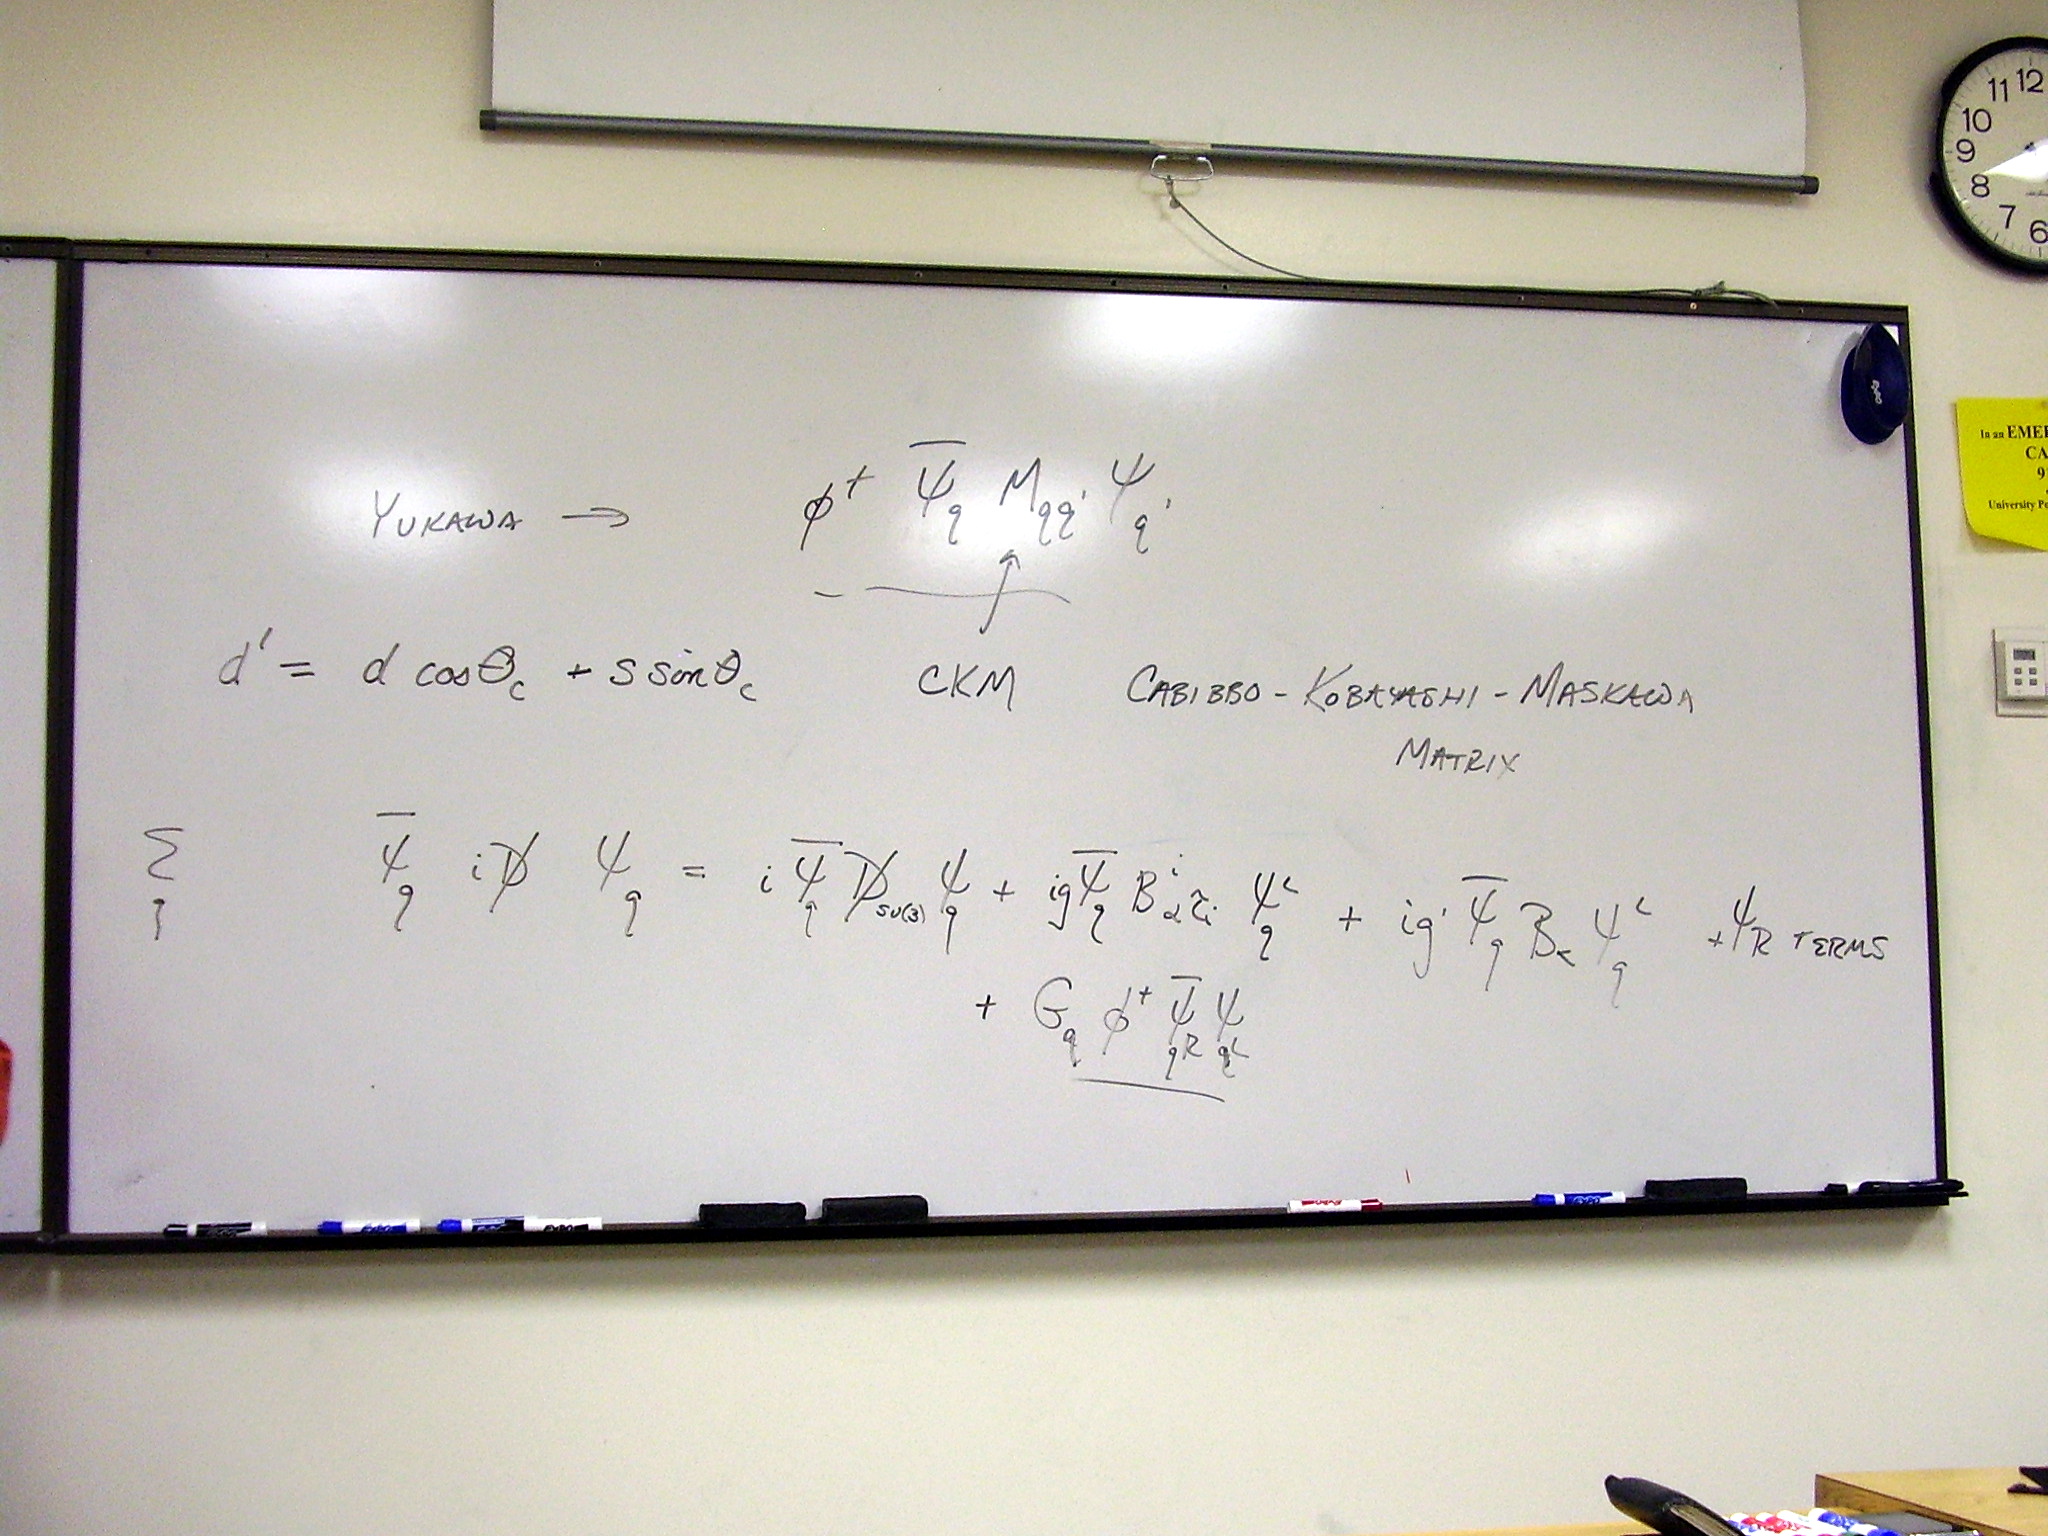 YUKAWA → ϕ† ψ̄_q M_qq' ψ_q'
d' = d cosθ_c + s sinθ_c
CKM CABIBBO - KOBAYASHI - MASKAWA
MATRIX
Σ_q ψ̄_q i D̸ ψ_q = i ψ̄_q D̸_SU(3) ψ_q + ig ψ̄_q B^i_α τ_i ψ^L_q + ig' ψ̄_q B_α ψ^L_q + ψ_R TERMS
+ G_q ϕ† ψ̄_qR ψ_qL
11 12
10
9
8
7
6
In an
University
EXPO